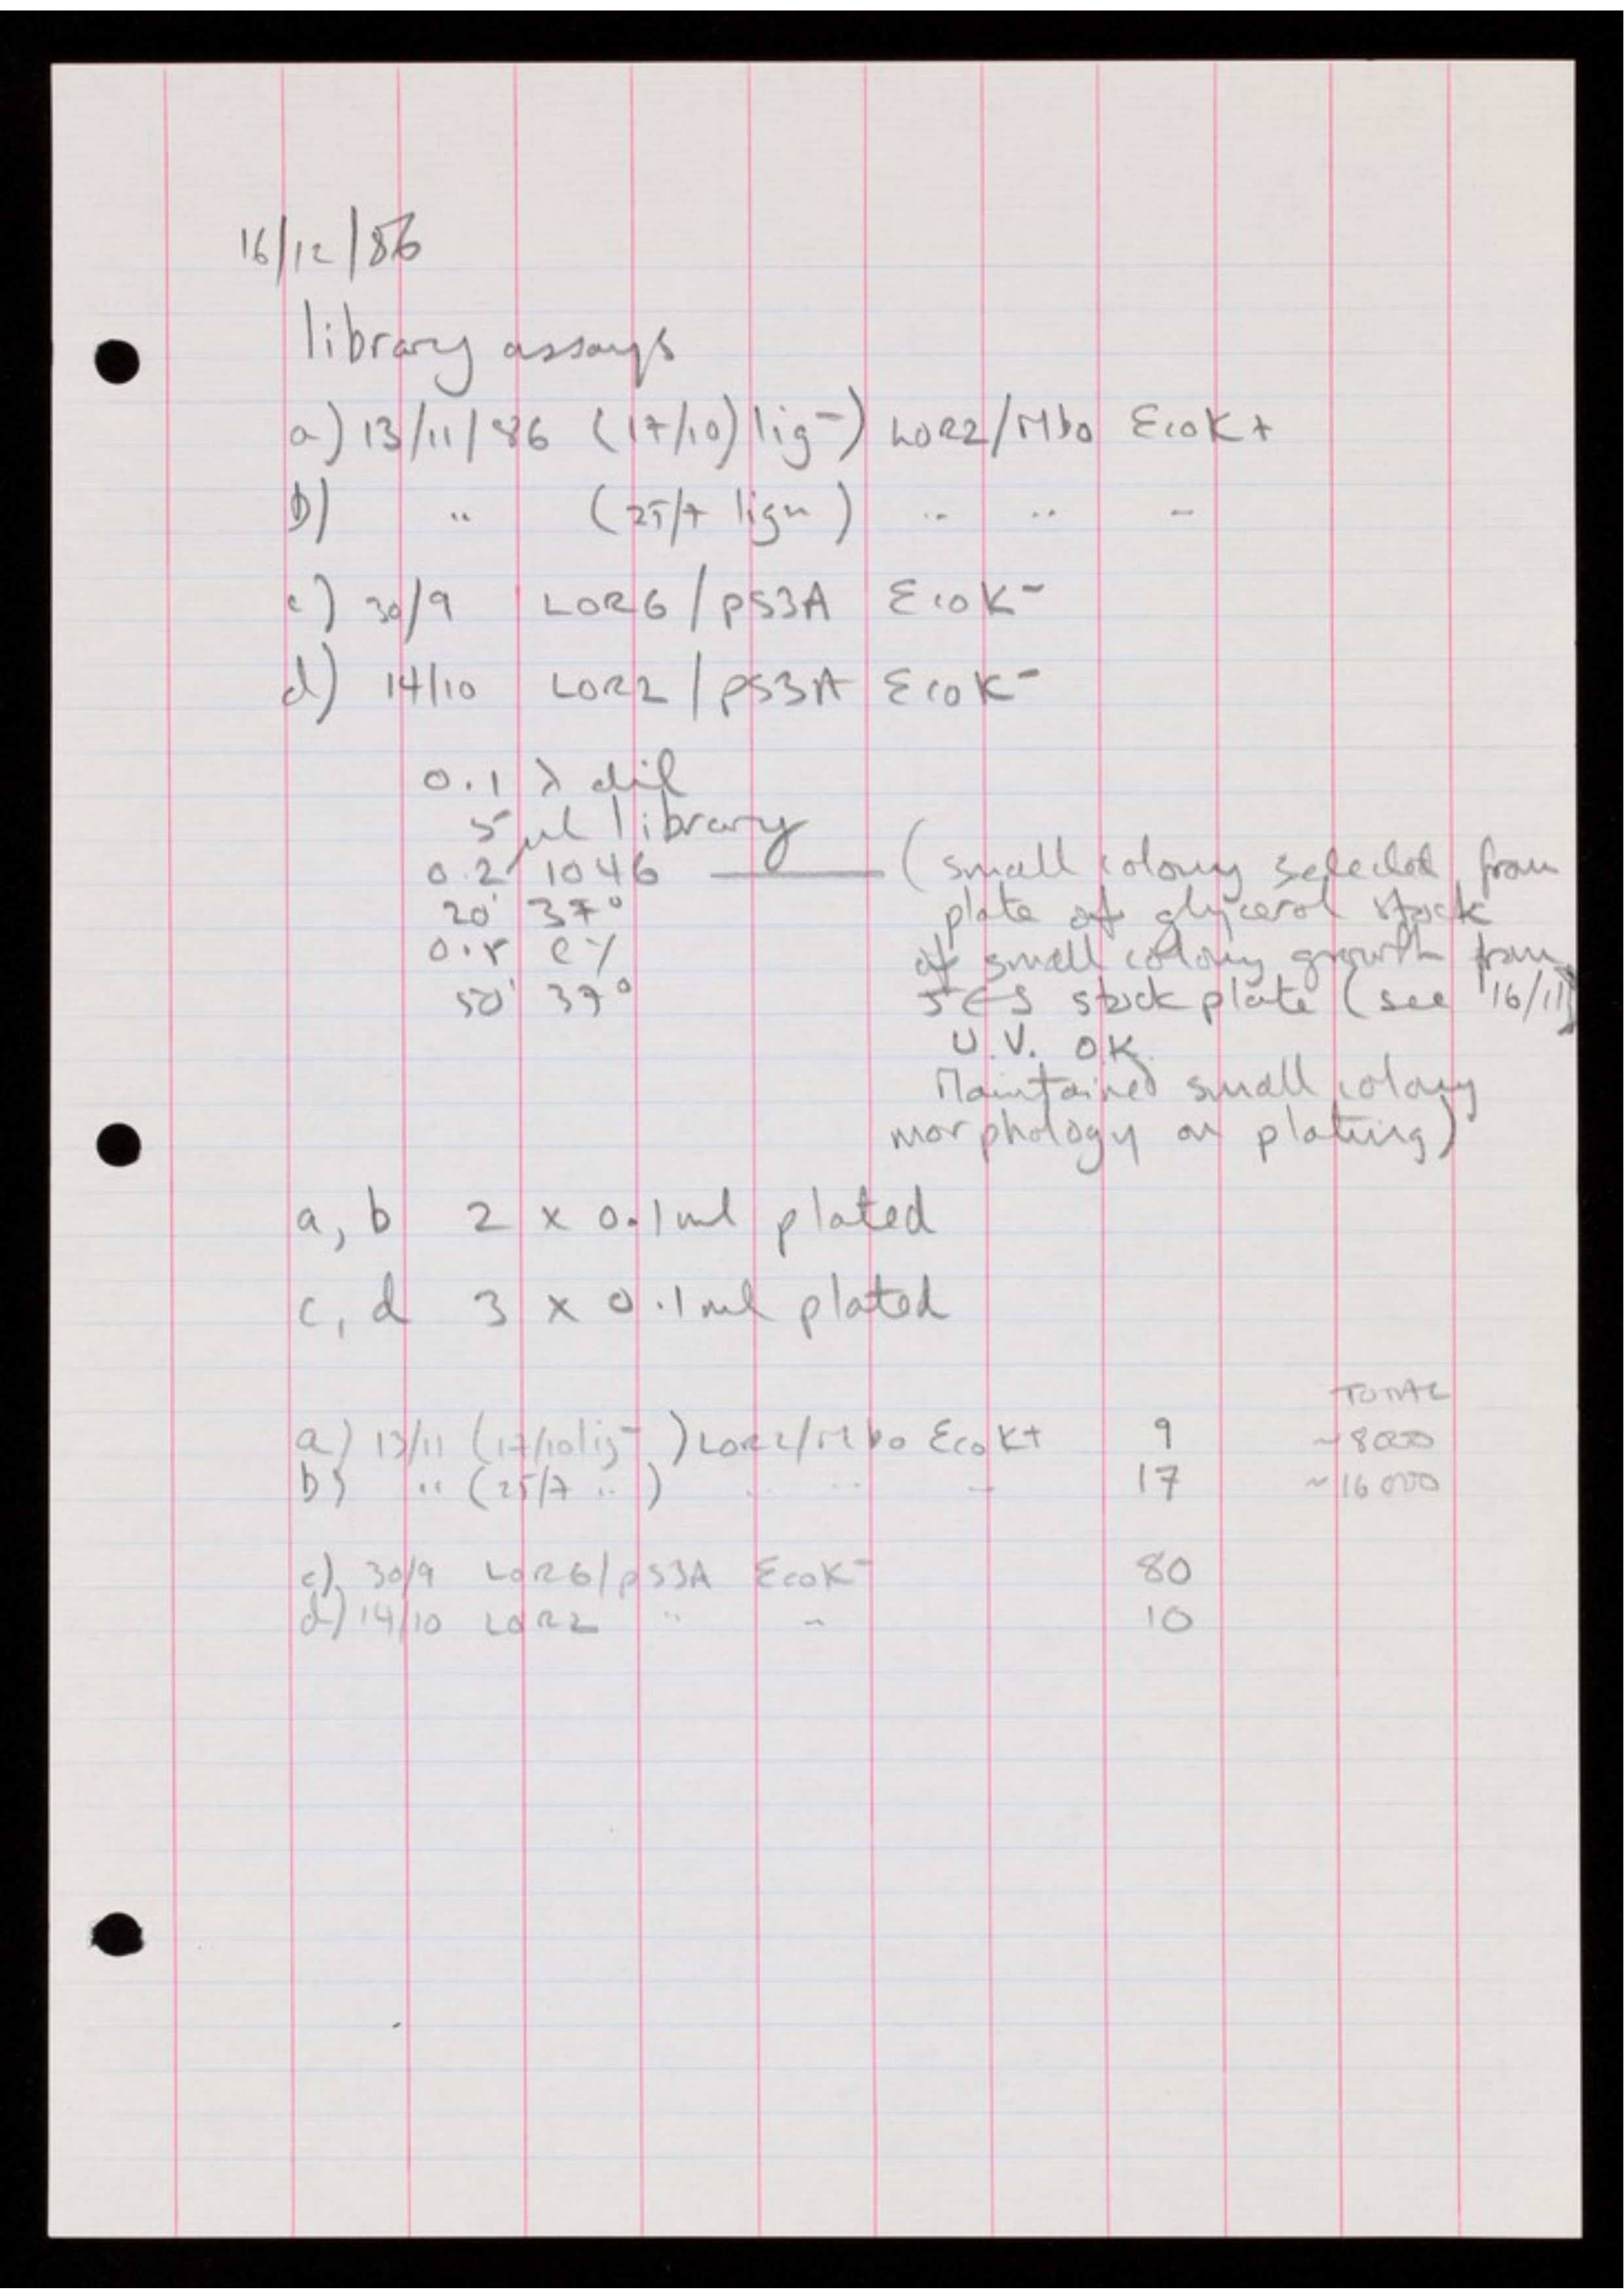 16/12/86
library assays
a) 13/11/86 (17/10) lig⁻) LOR2/Mbo EcoK+
b) " (25/7 lign) " " "
c) 30/9 LOR6/pS3A EcoK⁻
d) 14/10 LOR2/pS3A EcoK⁻
0.1 λ dil
5 µl library
0.2 1046 —— (small colony selected from
20' 37° plate of glycerol stock
0.8 CY of small colony growth from
50' 37° JES stock plate (see 16/11)
U.V. OK.
Maintained small colony
morphology on plating)
a, b 2 x 0.1ml plated
c, d 3 x 0.1ml plated
TOTAL
a) 13/11 (17/10 lig⁻) LOR2/Mbo EcoK+ 9 ~8000
b) " (25/7 ") " " " 17 ~16000
c) 30/9 LOR6/pS3A EcoK⁻ 80
d) 14/10 LOR2 " " 10